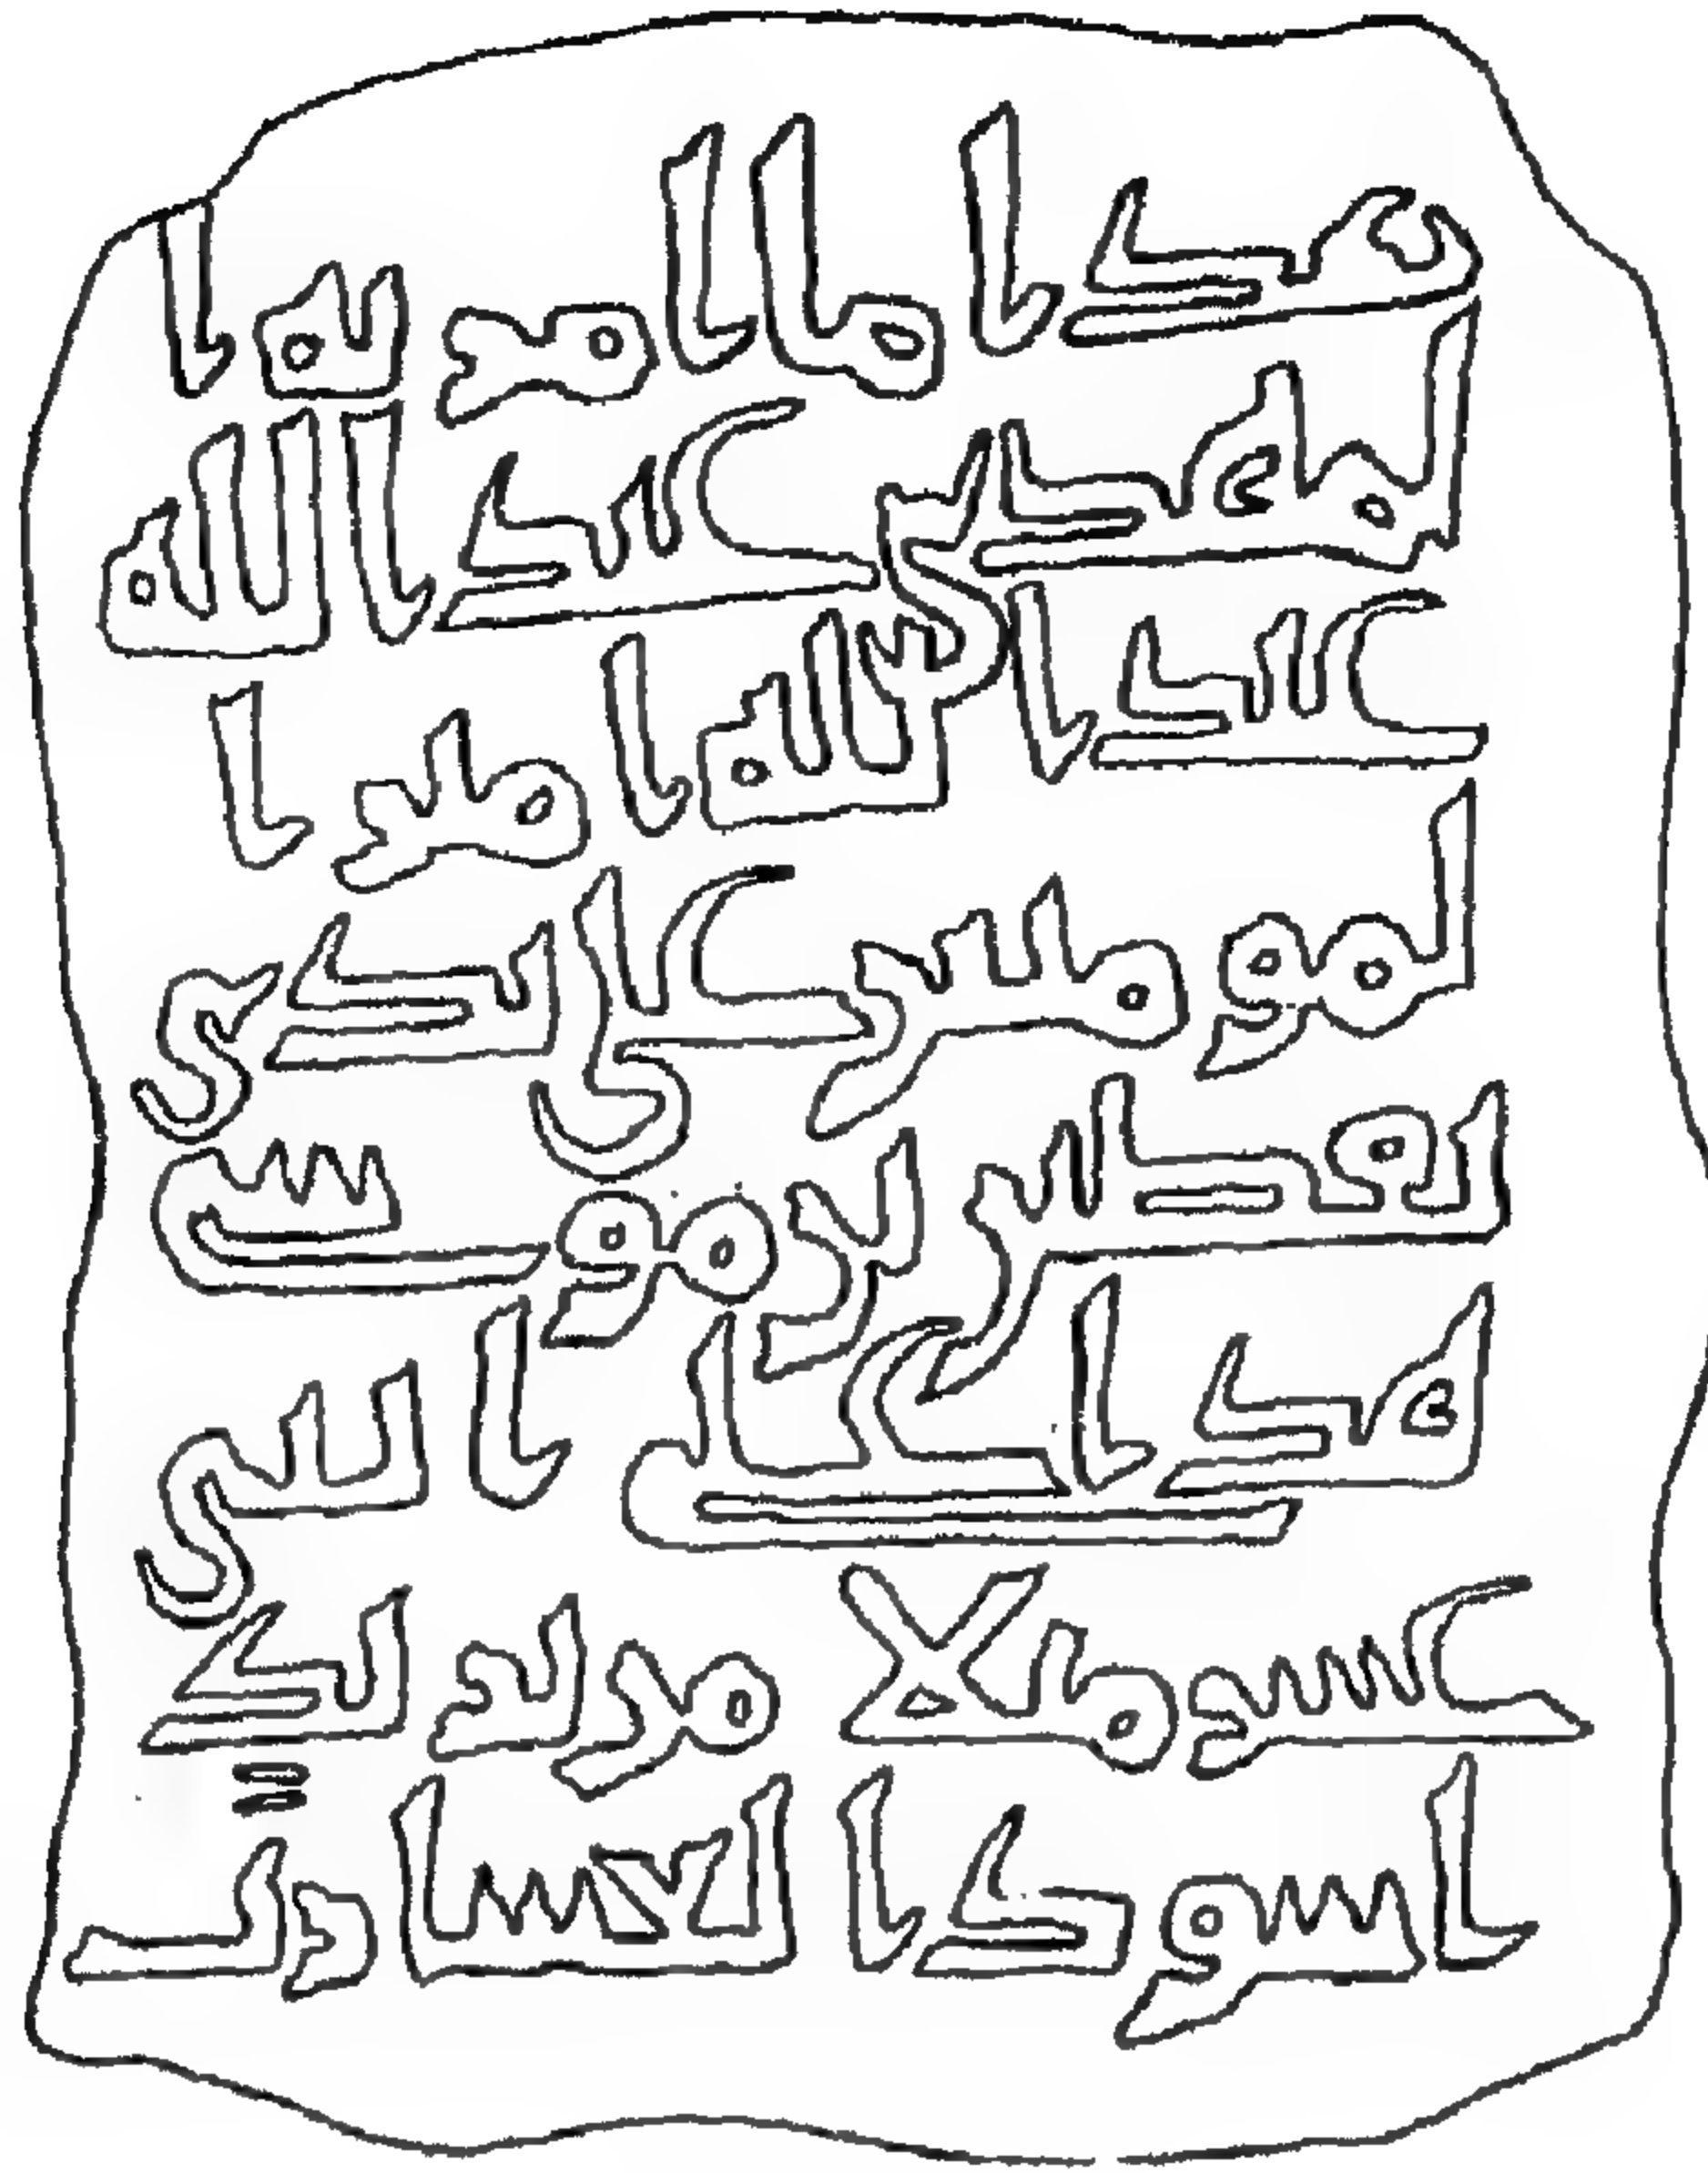 هدا ما امر به ا
لمهدى عبد الله
عبد الله امير ا
لمومنين على يدى
يقطين بن موسى
هدا على اثنى
عسر ميلا من بريد